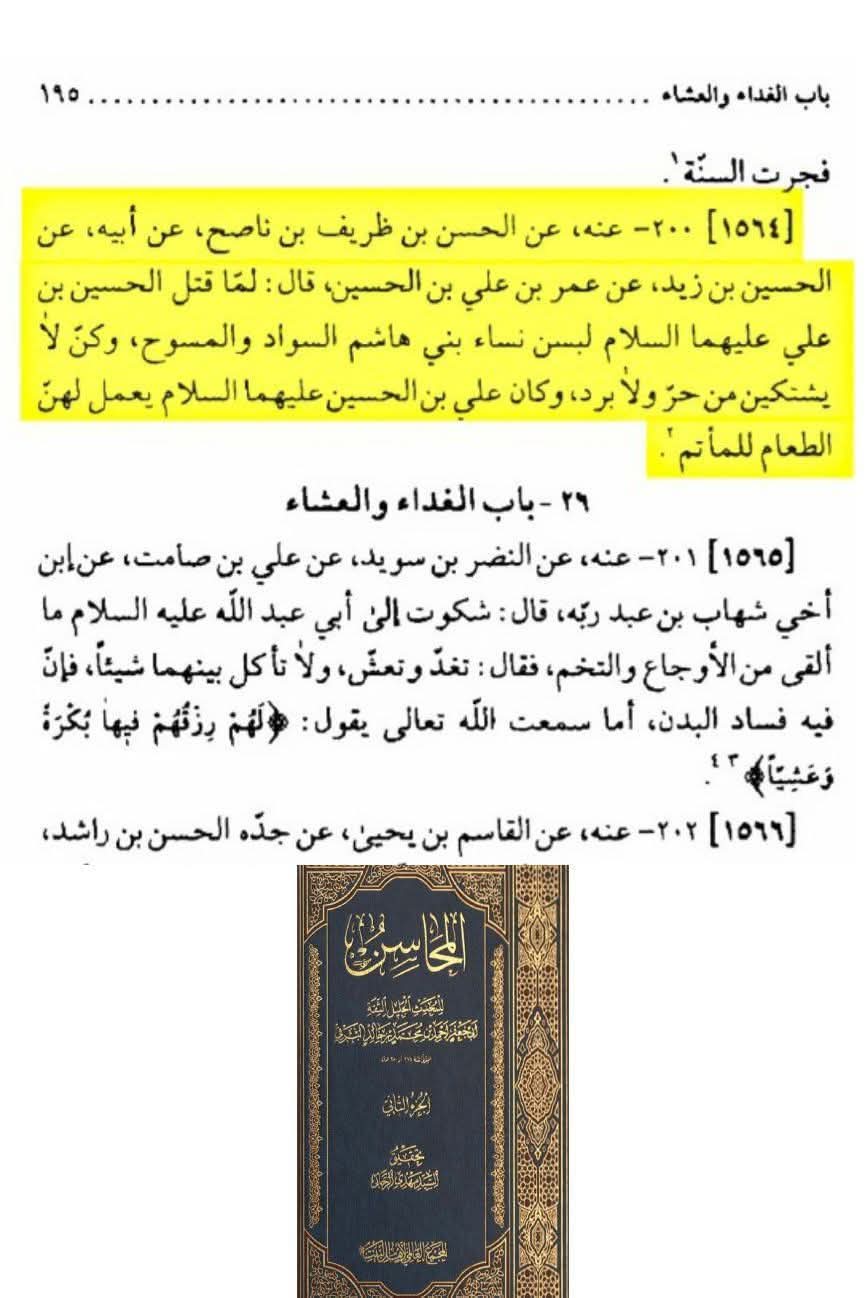 باب الغداء والعشاء ............................................ ١٩٥
فجرت السنّة١.
[١٥٦٤] ٢٠٠- عنه، عن الحسن بن ظريف بن ناصح، عن أبيه، عن
الحسين بن زيد، عن عمر بن علي بن الحسين، قال: لمّا قتل الحسين بن
علي عليهما السلام لبسن نساء بني هاشم السواد والمسوح، وكنّ لا
يشتكين من حرّ ولا برد، وكان علي بن الحسين عليهما السلام يعمل لهنّ
الطعام للمأتم٢.
٢٩ - باب الغداء والعشاء
[١٥٦٥] ٢٠١- عنه، عن النضر بن سويد، عن علي بن صامت، عن إبن
أخي شهاب بن عبد ربّه، قال: شكوت إلىٰ أبي عبد اللّه عليه السلام ما
ألقى من الأوجاع والتخم، فقال: تغدّ وتعشّ، ولا تأكل بينهما شيئاً، فإنّ
فيه فساد البدن، أما سمعت اللّه تعالى يقول: ﴿لَهُمْ رِزْقُهُمْ فِيهَا بُكْرَةً
وَعَشِيّاً﴾٣ ٤.
[١٥٦٦] ٢٠٢- عنه، عن القاسم بن يحيىٰ، عن جدّه الحسن بن راشد،
المحاسن
للمحدث الجليل الثقة
أبي جعفر أحمد بن محمد بن خالد البرقي
الجزء الثاني
تحقيق
السيد مهدي الرجائي
المجمع العالمي لأهل البيت